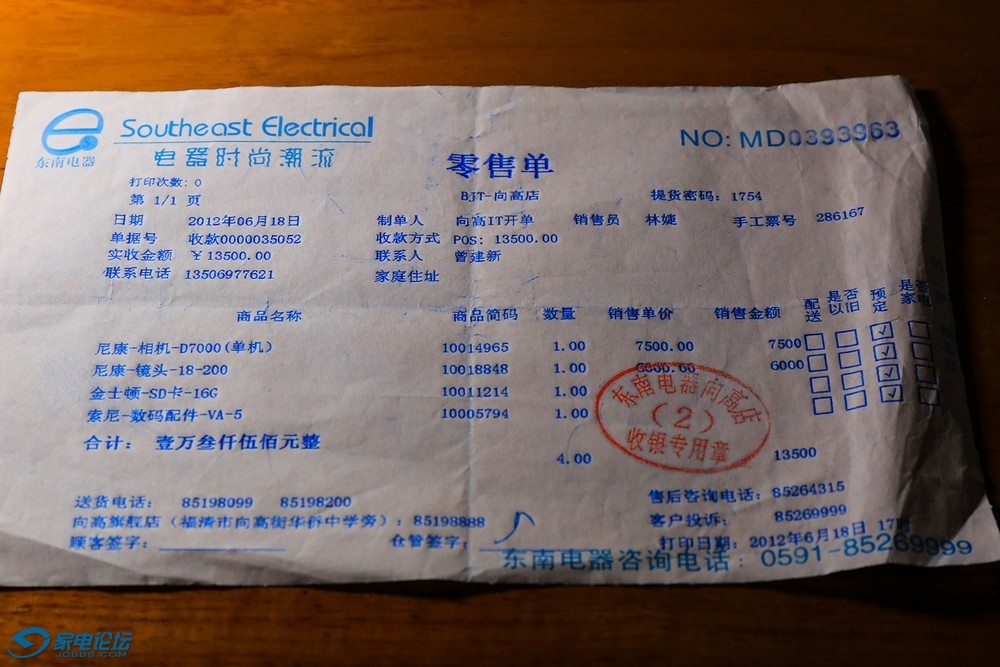 Southeast Electrical
东南电器
电器时尚潮流
NO: MD0393963
零售单
打印次数: 0
第 1/1 页
BJT-向高店
提货密码: 1754
日期 2012年06月18日 制单人 向高IT开单 销售员 林婕 手工票号 286167
单据号 收款0000035052 收款方式 POS: 13500.00
实收金额 ￥13500.00 联系人 曾建新
联系电话 13506977621 家庭住址
商品名称 商品简码 数量 销售单价 销售金额 配送 是否以旧 预定 是否家电
尼康-相机-D7000(单机) 10014965 1.00 7500.00 7500
尼康-镜头-18-200 10018848 1.00 6000.00 6000
金士顿-SD卡-16G 10011214 1.00
索尼-数码配件-VA-5 10005794 1.00
东南电器向高店
(2)
收银专用章
合计: 壹万叁仟伍佰元整
4.00 13500
送货电话: 85198099 85198200 售后咨询电话: 85264315
向高旗舰店（福清市向高街华侨中学旁）: 85198888 客户投诉: 85269999
顾客签字: 仓管签字: 打印日期: 2012年6月18日
东南电器咨询电话: 0591-85269999
家电论坛
JDBBS.COM